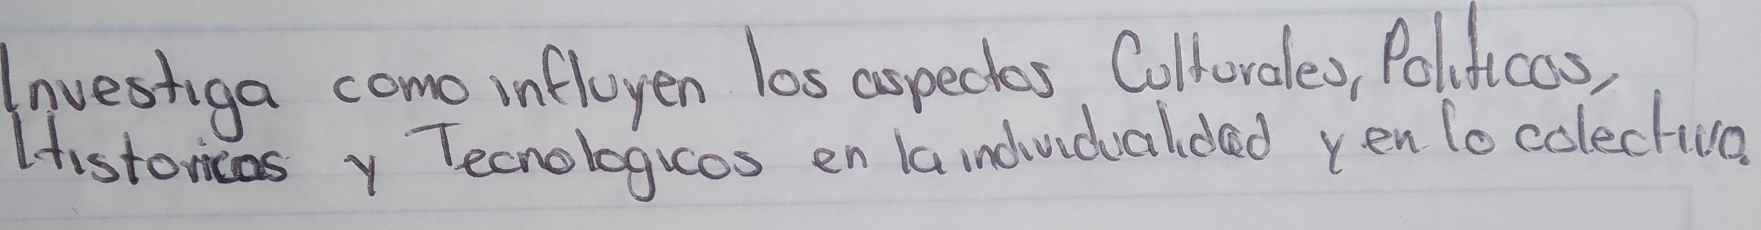 Investiga como influyen los aspectos Culturales, Politicos,
Historicos y Tecnologicos en la individualidad y en lo colectiva